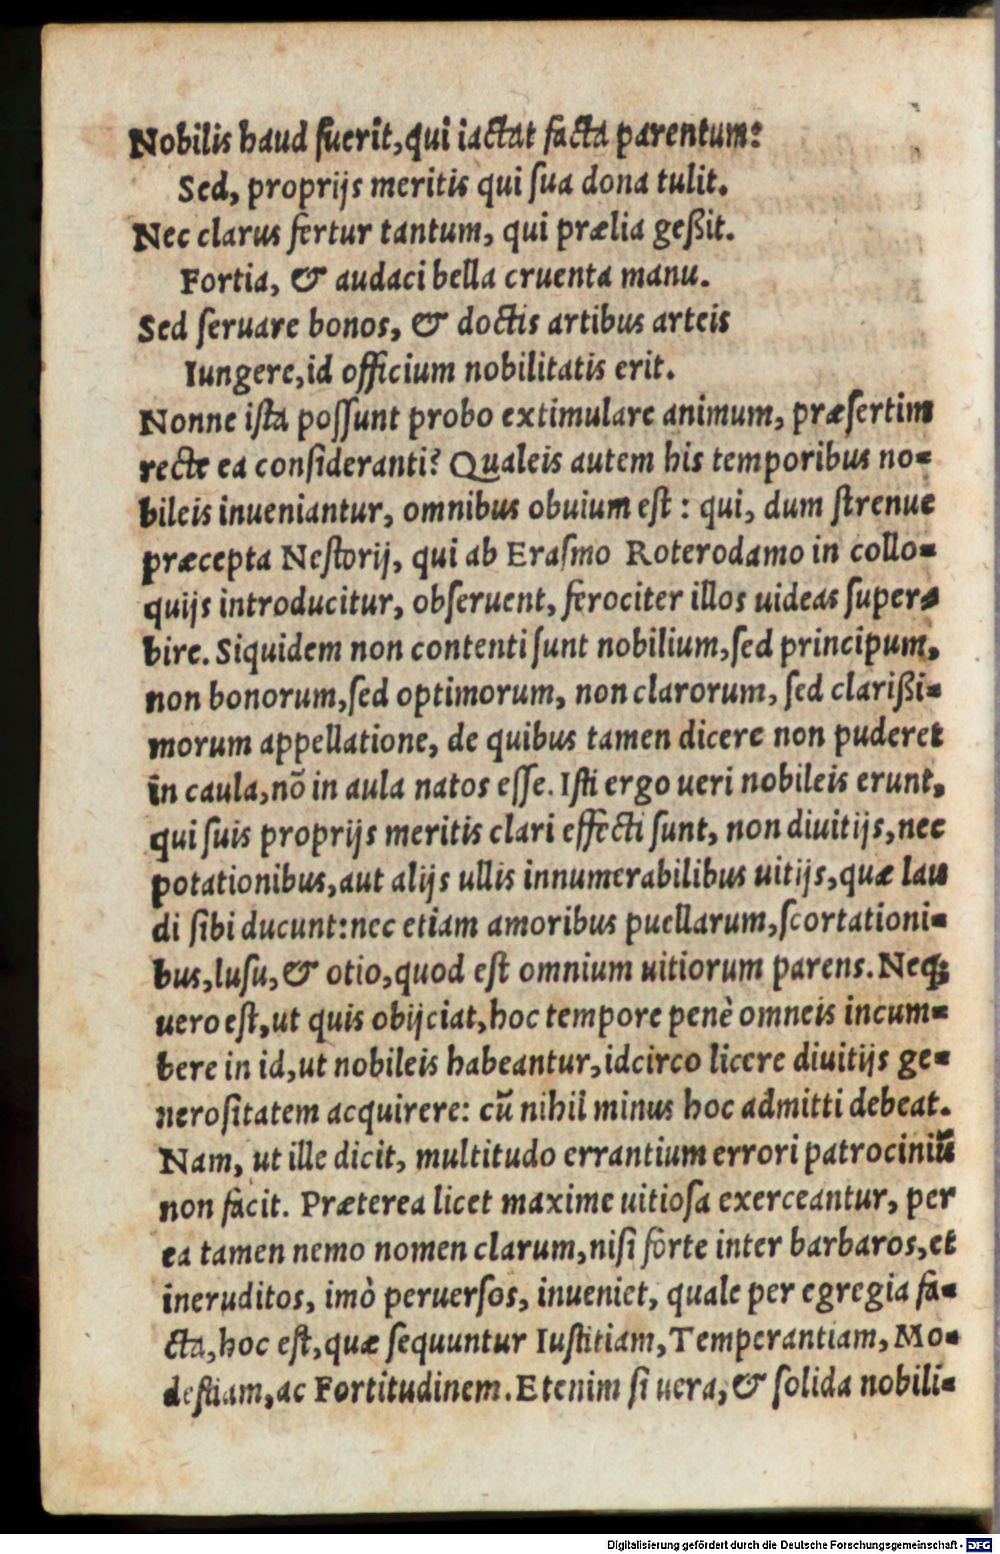 Nobilis haud fuerit, qui iactat facta parentum:
Sed, proprijs meritis qui sua dona tulit.
Nec clarus fertur tantum, qui prælia geßit.
Fortia, & audaci bella cruenta manu.
Sed seruare bonos, & doctis artibus arteis
Iungere, id officium nobilitatis erit.
Nonne ista possunt probo extimulare animum, præsertim
recte ea consideranti? Qualeis autem his temporibus no-
bileis inueniantur, omnibus obuium est: qui, dum strenue
præcepta Nestorij, qui ab Erasmo Roterodamo in collo-
quijs introducitur, obseruent, ferociter illos uideas super-
bire. Siquidem non contenti sunt nobilium, sed principum,
non bonorum, sed optimorum, non clarorum, sed clarißi-
morum appellatione, de quibus tamen dicere non puderet
in caula, nõ in aula natos esse. Isti ergo ueri nobileis erunt,
qui suis proprijs meritis clari effecti sunt, non diuitijs, nec
potationibus, aut alijs ullis innumerabilibus uitijs, quæ lau
di sibi ducunt: nec etiam amoribus puellarum, scortationi-
bus, lusu, & otio, quod est omnium uitiorum parens. Neq;
uero est, ut quis obijciat, hoc tempore penè omneis incum-
bere in id, ut nobileis habeantur, idcirco licere diuitijs ge-
nerositatem acquirere: cũ nihil minus hoc admitti debeat.
Nam, ut ille dicit, multitudo errantium errori patrociniũ
non facit. Præterea licet maxime uitiosa exerceantur, per
ea tamen nemo nomen clarum, nisi forte inter barbaros, et
ineruditos, imò peruersos, inueniet, quale per egregia fa-
cta, hoc est, quæ sequuntur Iustitiam, Temperantiam, Mo-
destiam, ac Fortitudinem. Etenim si uera, & solida nobili-
Digitalisierung gefördert durch die Deutsche Forschungsgemeinschaft - DFG